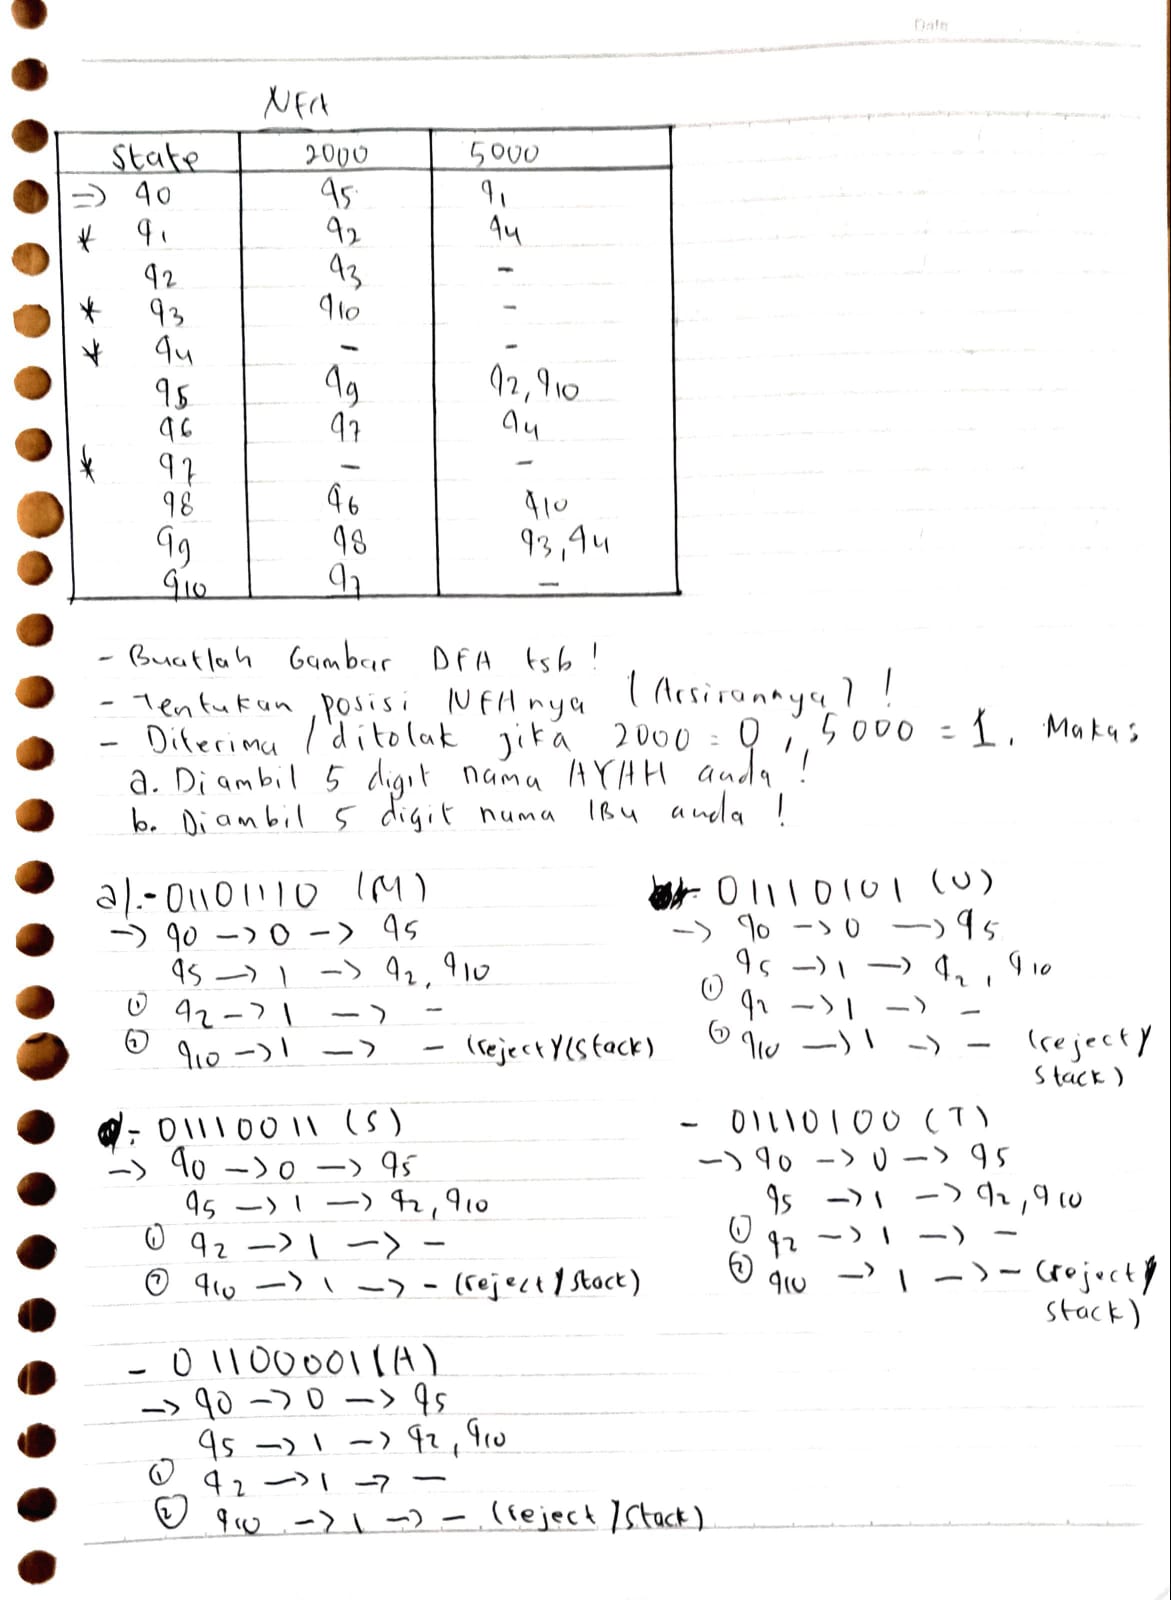 Date
NFA
State 2000 5000
=> q0 q5 q1
* q1 q2 q4
q2 q3 -
* q3 q10 -
* q4 - -
q5 q9 q2, q10
q6 q7 q4
* q7 - -
q8 q6 q10
q9 q8 q3, q4
q10 q7 -
- Buatlah Gambar DFA tsb !
- Tentukan posisi NFAnya (Arsirannya) !
- Diterima / ditolak jika 2000 = 0, 5000 = 1. Maka :
a. Diambil 5 digit nama AYAH anda !
b. Diambil 5 digit nama IBU anda !
a). - 01101110 (M)
-> q0 -> 0 -> q5
q5 -> 1 -> q2, q10
① q2 -> 1 -> -
② q10 -> 1 -> - (reject/(stack)
- 01110101 (U)
-> q0 -> 0 -> q5
q5 -> 1 -> q2, q10
① q2 -> 1 -> -
② q10 -> 1 -> - (reject/
stack)
- 01110011 (S)
-> q0 -> 0 -> q5
q5 -> 1 -> q2, q10
① q2 -> 1 -> -
② q10 -> 1 -> - (reject/stack)
- 01110100 (T)
-> q0 -> 0 -> q5
q5 -> 1 -> q2, q10
① q2 -> 1 -> -
② q10 -> 1 -> - (reject/
stack)
- 01100001 (A)
-> q0 -> 0 -> q5
q5 -> 1 -> q2, q10
① q2 -> 1 -> -
② q10 -> 1 -> - (reject/stack)